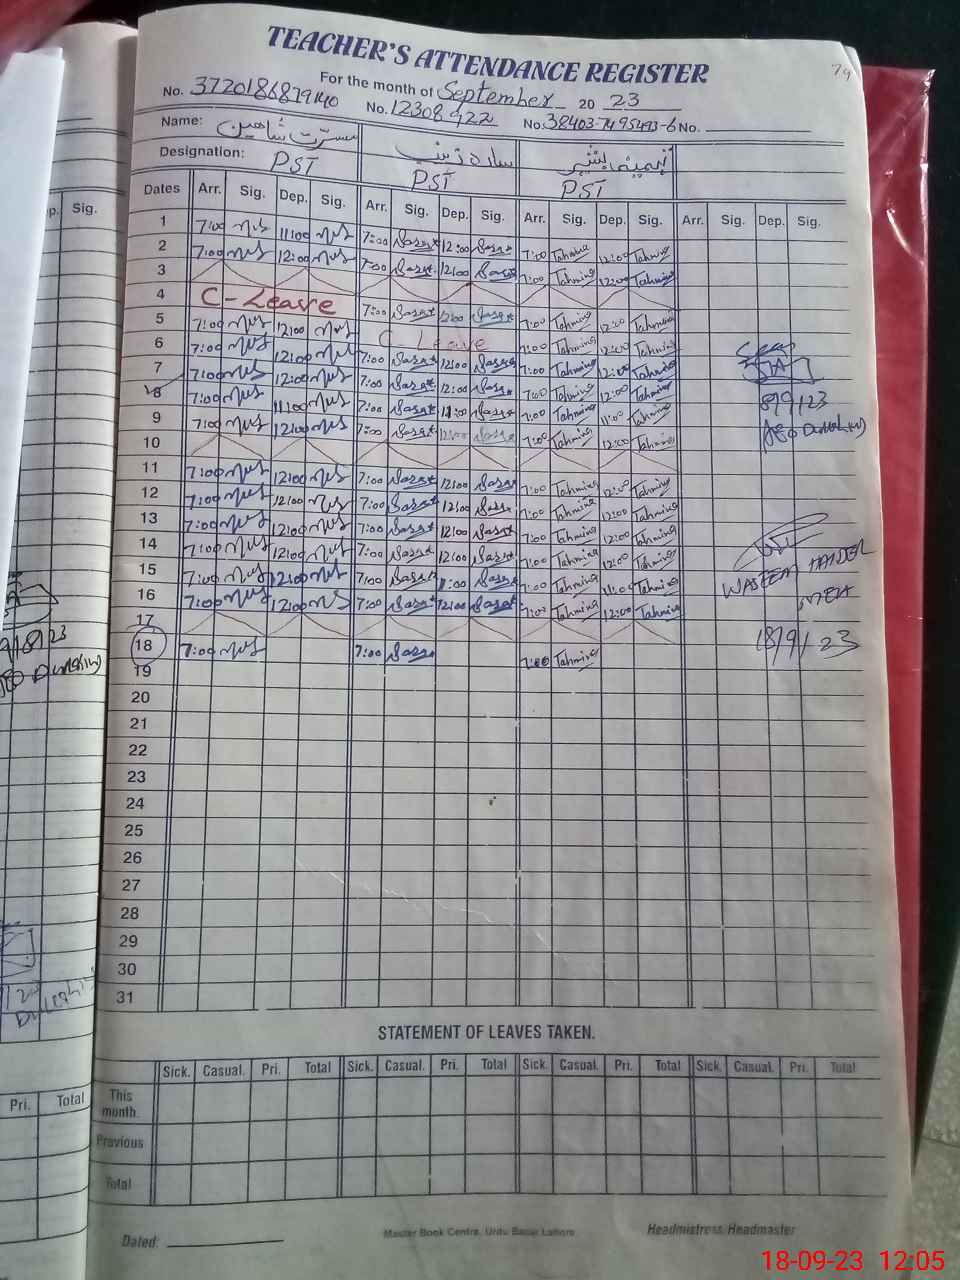 TEACHER'S ATTENDANCE REGISTER
79
For the month of September 20 23
No. 3720186879140 No. 12308922 No. 38403-7495493-6 No.
Name: مسرت شاهین ساره زینب
Designation: PST PST PST
Dates Arr. Sig. Dep. Sig. Arr. Sig. Dep. Sig. Arr. Sig. Dep. Sig. Arr. Sig. Dep. Sig.
1 7:00 11:00 7:00 Sara 12:00 Sara 7:00 Tahmina 12:00 Tahmina
2 7:00 12:00 7:00 Sara 12:00 Sara 7:00 Tahmina 12:00 Tahmina
3
4 C-Leave 7:00 Sara 12:00 Sara 7:00 Tahmina 12:00 Tahmina
5 7:00 12:00 C Leave 7:00 Tahmina 12:00 Tahmina
6 7:00 12:00 7:00 Sara 12:00 Sara 7:00 Tahmina 12:00 Tahmina
7 7:00 12:00 7:00 Sara 12:00 Sara 7:00 Tahmina 12:00 Tahmina
8 7:00 11:00 7:00 Sara 11:00 Sara 7:00 Tahmina 11:00 Tahmina
8/9/23
9 7:00 12:00 7:00 Sara 12:00 Sara 7:00 Tahmina 12:00 Tahmina
10
11 7:00 12:00 7:00 Sara 12:00 Sara 7:00 Tahmina 12:00 Tahmina
12 7:00 12:00 7:00 Sara 12:00 Sara 7:00 Tahmina 12:00 Tahmina
13 7:00 12:00 7:00 Sara 12:00 Sara 7:00 Tahmina 12:00 Tahmina
14 7:00 12:00 7:00 Sara 12:00 Sara 7:00 Tahmina 12:00 Tahmina
15 7:00 12:00 7:00 Sara 11:00 Sara 7:00 Tahmina 11:00 Tahmina
WASEEM HAIDER
MEA
16 7:00 12:00 7:00 Sara 12:00 Sara 7:00 Tahmina 12:00 Tahmina
17
18 7:00 7:00 Sara 7:00 Tahmina
18/9/23
19
20
21
22
23
24
25
26
27
28
29
30
31
STATEMENT OF LEAVES TAKEN.
Sick. Casual. Pri. Total Sick. Casual. Pri. Total Sick. Casual. Pri. Total Sick. Casual. Pri. Total
This month
Previous
Total
Dated: Master Book Centre, Urdu Bazar Lahore Headmistress/Headmaster
ep. Sig.
Pri. Total
18-09-23 12:05